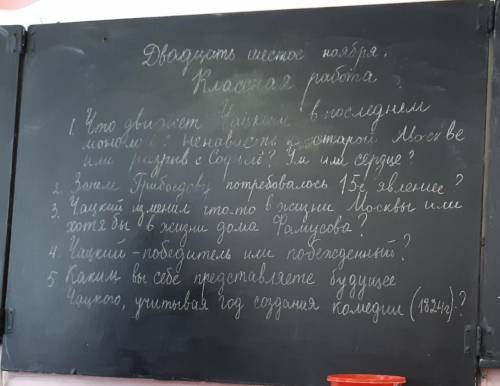 Двадцать шестое ноября.
Классная работа
1. Что движет Чацким в последнем
монологе: ненависть к старой Москве
или разрыв с Софьей? Ум или сердце?
2. Зачем Грибоедову потребовалось 15е явление?
3. Чацкий изменил что-то в жизни Москвы или
хотя бы в жизни дома Фамусова?
4. Чацкий - победитель или побежденный?
5 Каким вы себе представляете будущее
Чацкого, учитывая год создания комедии (1824г)?